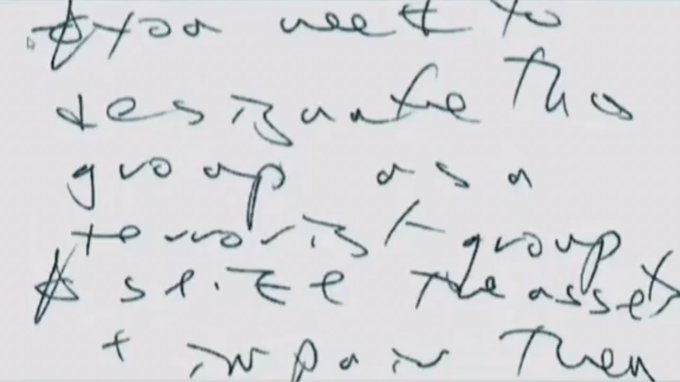 * you need to
designate this
group as a
terrorist group
* seize the assets
+ impair them